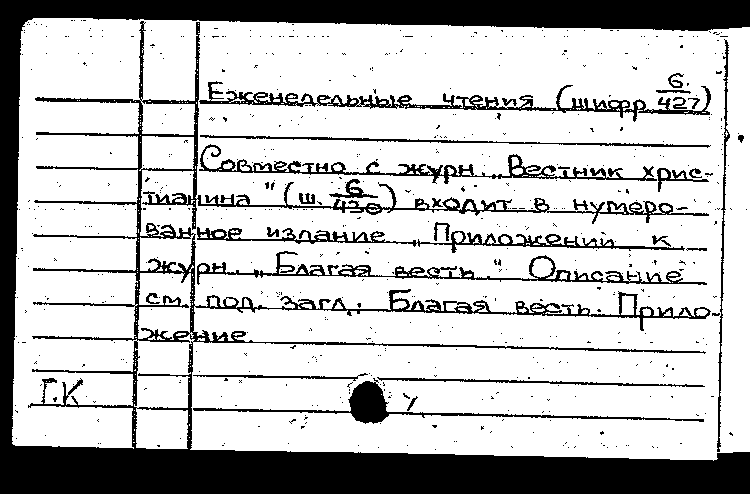 Еженедельные чтения (шифр 6/427)
Совместно с журн. „Вестник хрис-
тианина" (ш. 6/436) входит в нумеро-
ванное издание „Приложений к
журн. „Благая весть." Описание
см. под. загл.: Благая весть. Прило-
жение.
Г.К